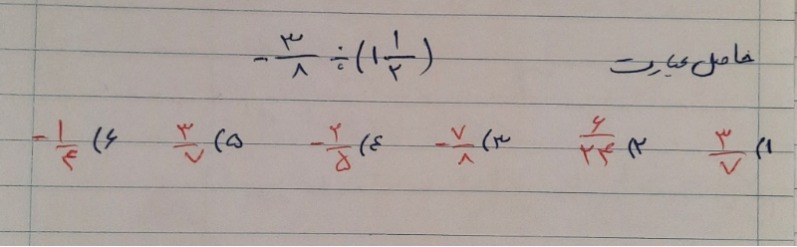 حاصل عبارت -۳/۸ ÷ (۱ ۱/۲)
۱) ۳/۷ ۲) ۶/۲۴ ۳) -۷/۸ ٤) -۲/۵ ۵) ۳/۷ ۶) -۱/۴